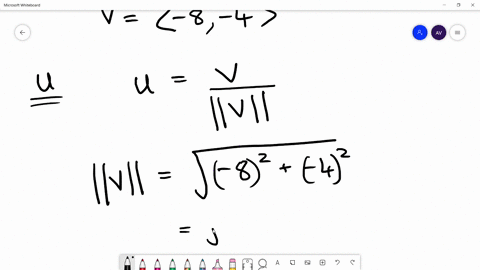 Microsoft Whiteboard
V = ⟨-8, -4⟩
AV
u u = V / ||V||
||V|| = √(-8)² + (-4)²
=